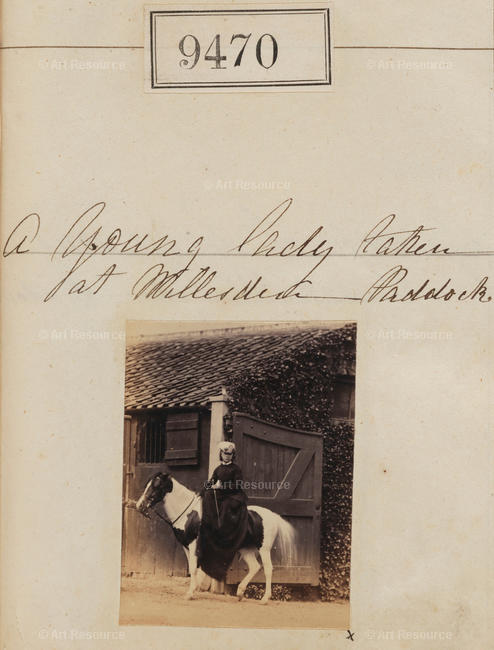 9470
© Art Resource © Art Resource © Art Resource
© Art Resource
A Young lady taken
at Willesden Paddock.
© Art Resource © Art Resource © Art Resource
© Art Resource
© Art Resource © Art Resource
x